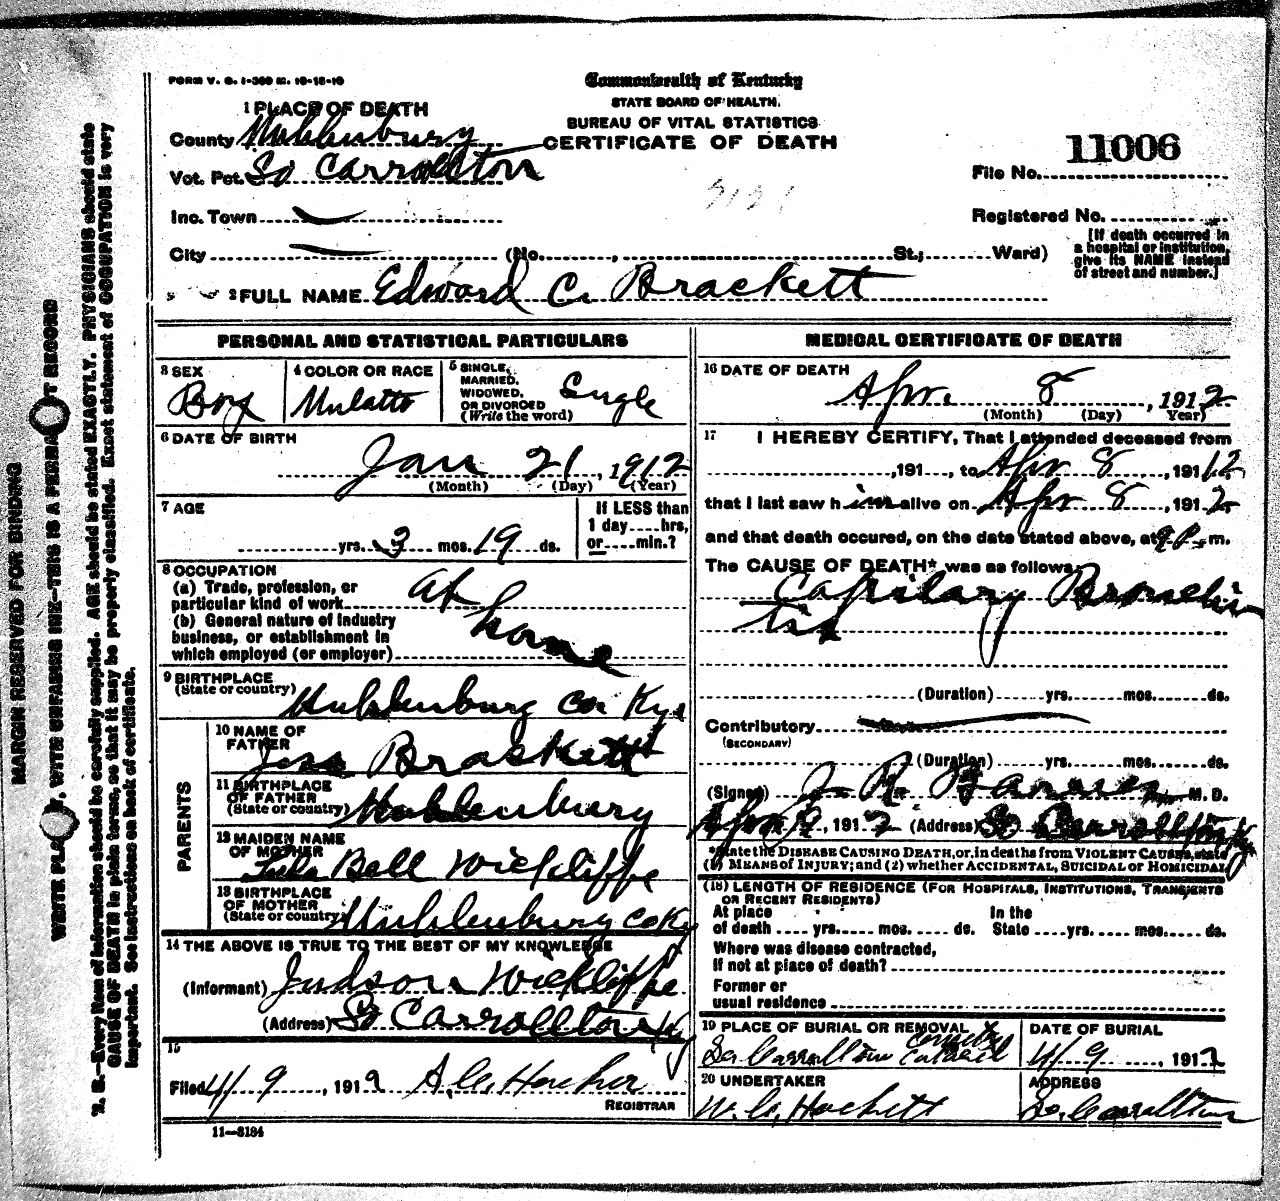 FORM V. S. 1-300 M. 10-18-10
Commonwealth of Kentucky
STATE BOARD OF HEALTH.
BUREAU OF VITAL STATISTICS
CERTIFICATE OF DEATH
1 PLACE OF DEATH
County Muhlenburg
Vot. Pct. So Carrollton
Inc. Town
City (No. , St.; Ward)
11006
File No.
Registered No.
[If death occurred in
a hospital or institution,
give its NAME instead
of street and number.]
2 FULL NAME Edward C. Brackett
PERSONAL AND STATISTICAL PARTICULARS
3 SEX
Boy
4 COLOR OR RACE
Mulatto
5 SINGLE,
MARRIED,
WIDOWED,
OR DIVORCED
(Write the word)
Single
6 DATE OF BIRTH
Jan 21, 1912
(Month) (Day) (Year)
7 AGE
yrs. 3 mos. 19 ds.
If LESS than
1 day....hrs,
or....min.?
8 OCCUPATION
(a) Trade, profession, or
particular kind of work
(b) General nature of industry
business, or establishment in
which employed (or employer)
at home
9 BIRTHPLACE
(State or country)
Muhlenburg Co Ky
PARENTS
10 NAME OF
FATHER
Jess Brackett
11 BIRTHPLACE
OF FATHER
(State or country)
Muhlenburg
12 MAIDEN NAME
OF MOTHER
Bell Wickliffe
13 BIRTHPLACE
OF MOTHER
(State or country)
Muhlenburg Co Ky
14 THE ABOVE IS TRUE TO THE BEST OF MY KNOWLEDGE
(Informant) Judson Wickliffe
(Address) So Carrollton Ky
15
Filed 4/9, 1912 A.C. Hocker
REGISTRAR
11—3184
MEDICAL CERTIFICATE OF DEATH
16 DATE OF DEATH
Apr. 8, 1912
(Month) (Day) Year)
17 I HEREBY CERTIFY, That I attended deceased from
,191 , to Apr 8, 1912
that I last saw him alive on Apr 8, 1912
and that death occured, on the date stated above, at 9 P. m.
The CAUSE OF DEATH* was as follows
Capilary Bronchi
tis
(Duration) yrs. mos. ds.
Contributory
(SECONDARY)
(Duration) yrs. mos. ds.
(Signed) J R M. D.
Apr 9, 1912 (Address) So Carrollton Ky
*State the DISEASE CAUSING DEATH, or, in deaths from VIOLENT CAUSES, state
(1) MEANS of INJURY; and (2) whether ACCIDENTAL, SUICIDAL or HOMICIDAL
(18) LENGTH OF RESIDENCE (FOR HOSPITALS, INSTITUTIONS, TRANSIENTS
OR RECENT RESIDENTS)
At place In the
of death .... yrs. .... mos. .... ds. State .... yrs. .... mos. .... ds.
Where was disease contracted,
If not at place of death?
Former or
usual residence
19 PLACE OF BURIAL OR REMOVAL
So Carrollton
DATE OF BURIAL
4/9, 1912
20 UNDERTAKER
W. C. Hackett
ADDRESS
So. Carrollton
MARGIN RESERVED FOR BINDING
N. B.—Every item of information should be carefully supplied. AGE should be stated EXACTLY. PHYSICIANS should state
CAUSE OF DEATH in plain terms, so that it may be properly classified. Exact statement of OCCUPATION is very
important. See instructions on back of certificate.